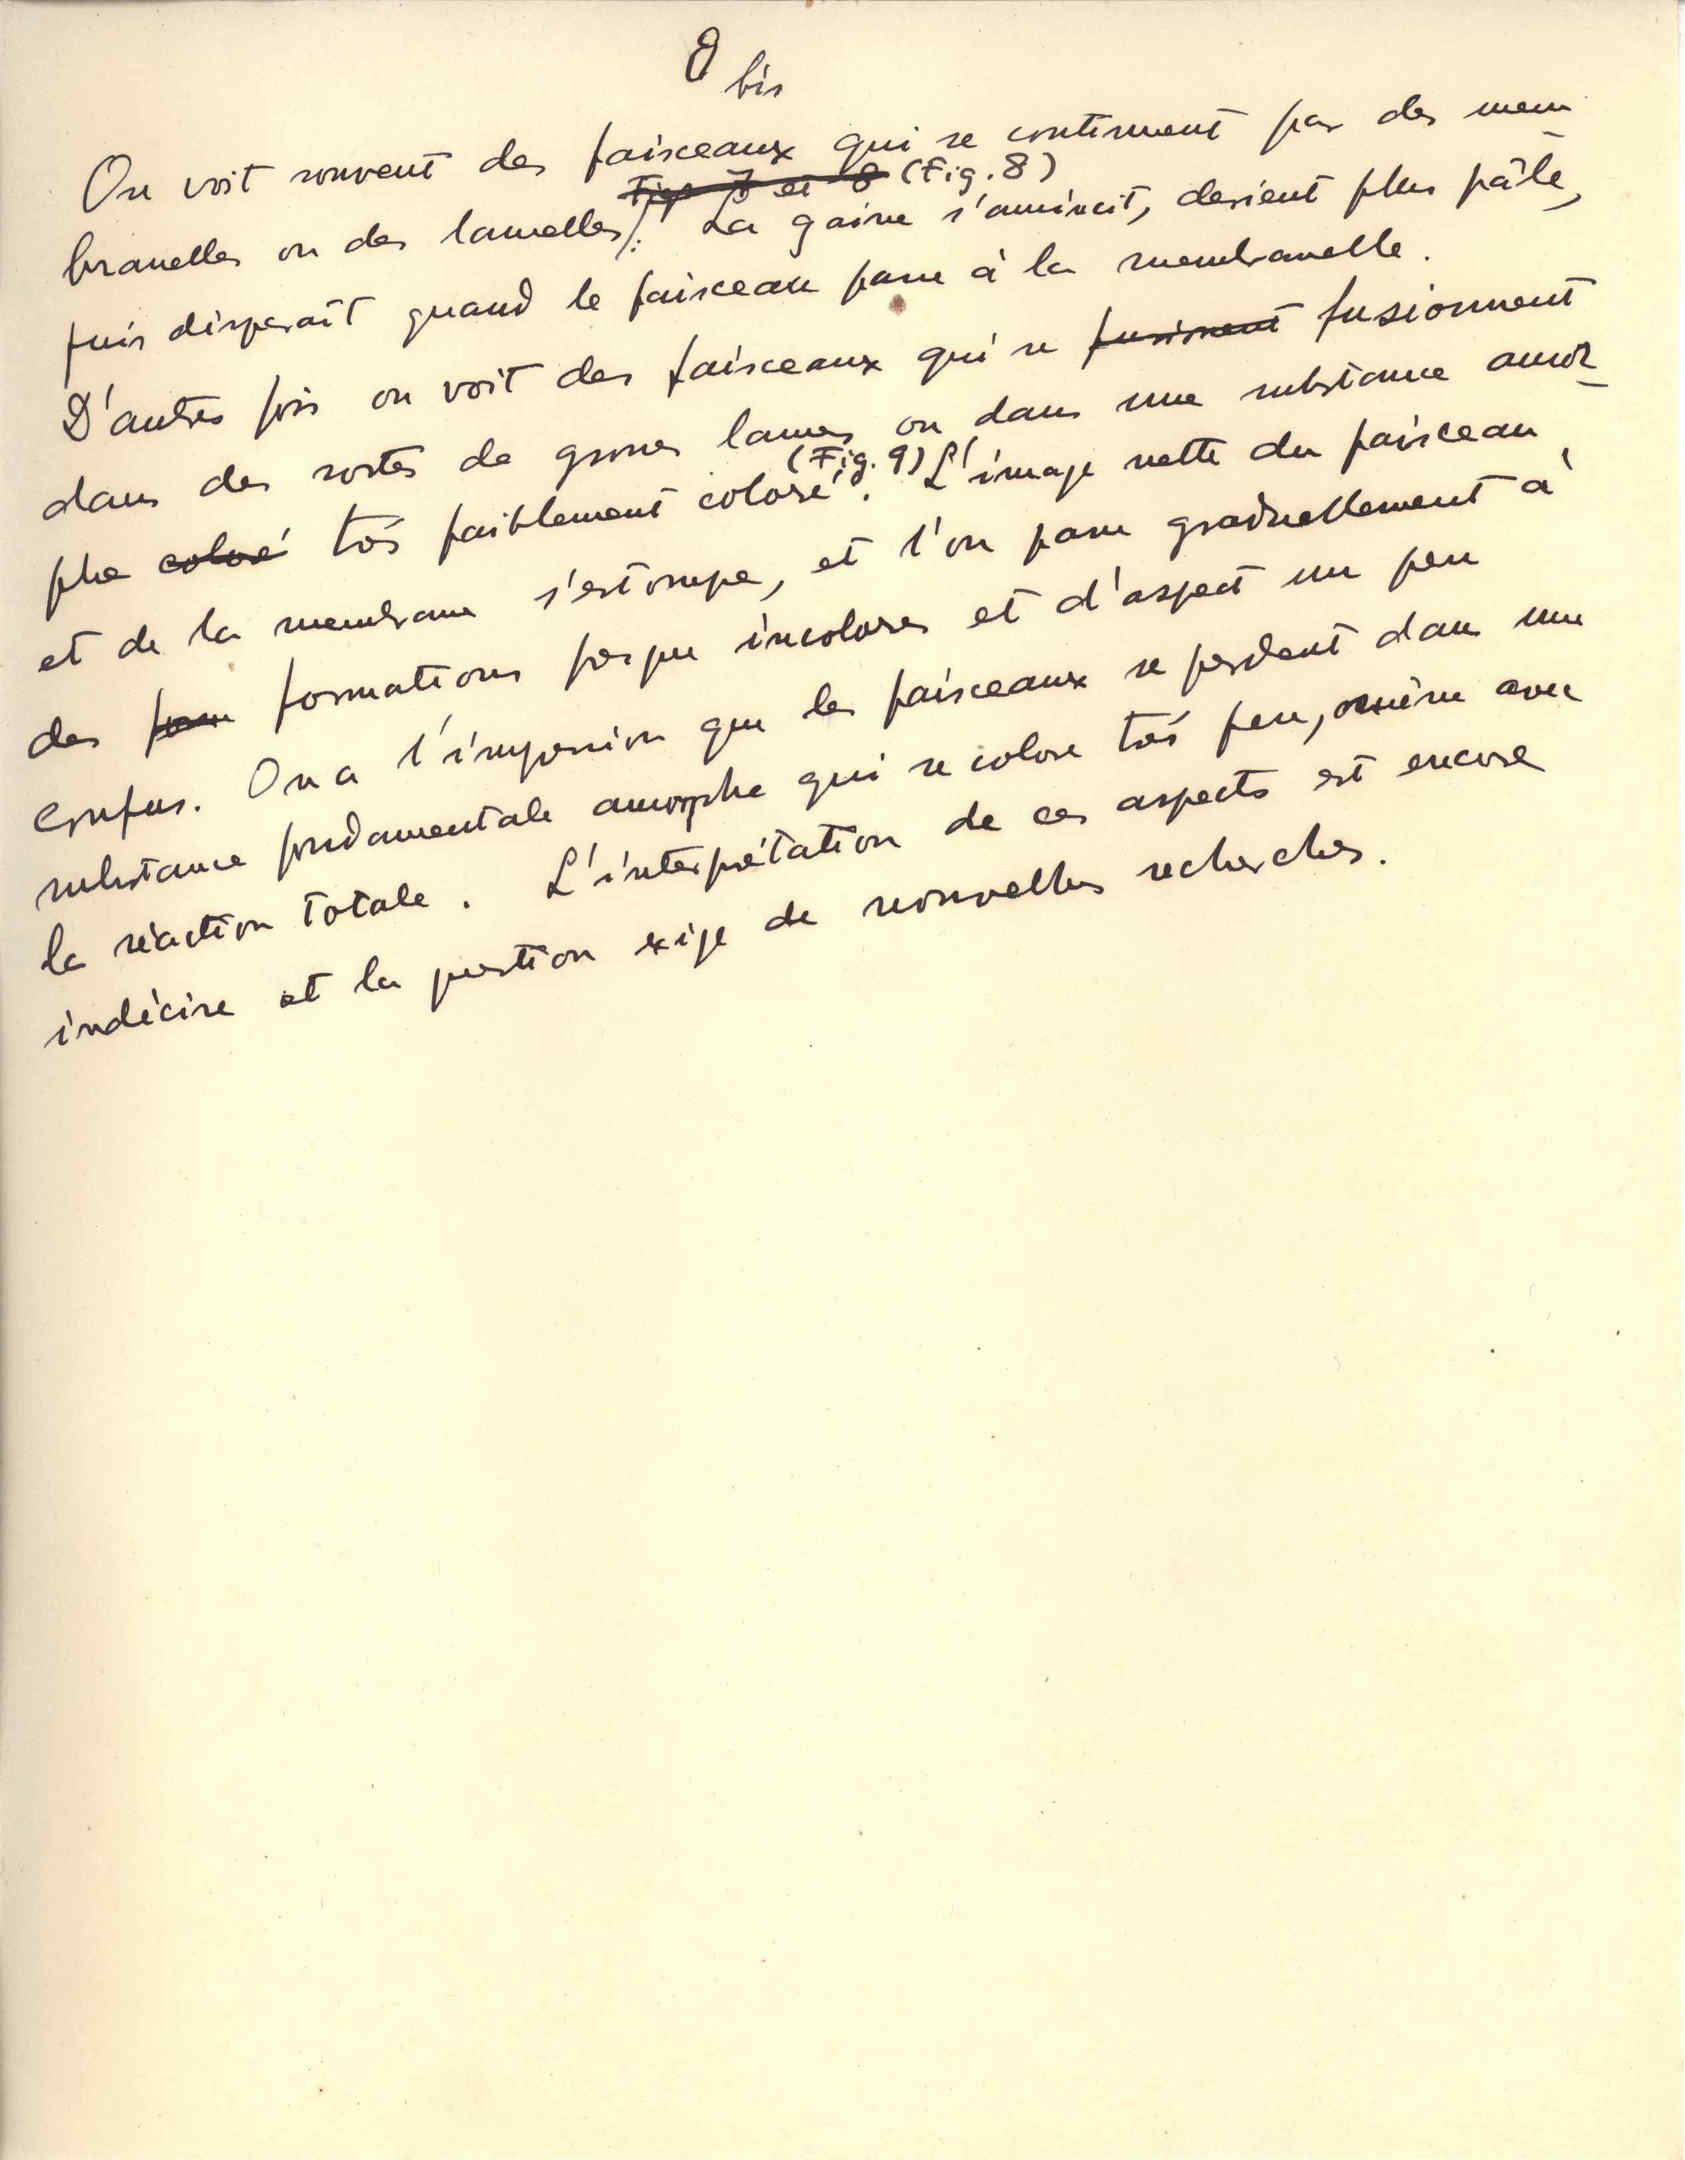 8 bis
On voit souvent des faisceaux qui se continuent par des mem
Figs 7 et 8 (Fig. 8)
branelles ou des lamelles. La gaine s'amincit, devient plus pâle,
puis disparaît quand le faisceau passe à la membranelle.
D'autres fois on voit des faisceaux qui se fusionent fusionnent
dans des sortes de grosses lames ou dans une substance amor-
(Fig. 9)
phe coloré très faiblement coloré. L'image nette du faisceau
et de la membrane s'estompe, et l'on passe graduellement à
des form formations presque incolores et d'aspect un peu
confus. On a l'impression que les faisceaux se perdent dans une
substance fondamentale amorphe qui se colore très peu, même avec
la réaction totale. L'interprétation de ces aspects est encore
indécise et la question exige de nouvelles recherches.